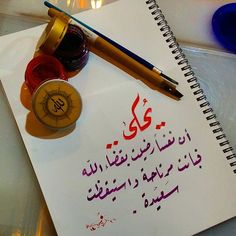 يحكى..
أن نفساً رضيت بقضاء الله
فباتت مرتاحة واستيقظت
سعيدة.